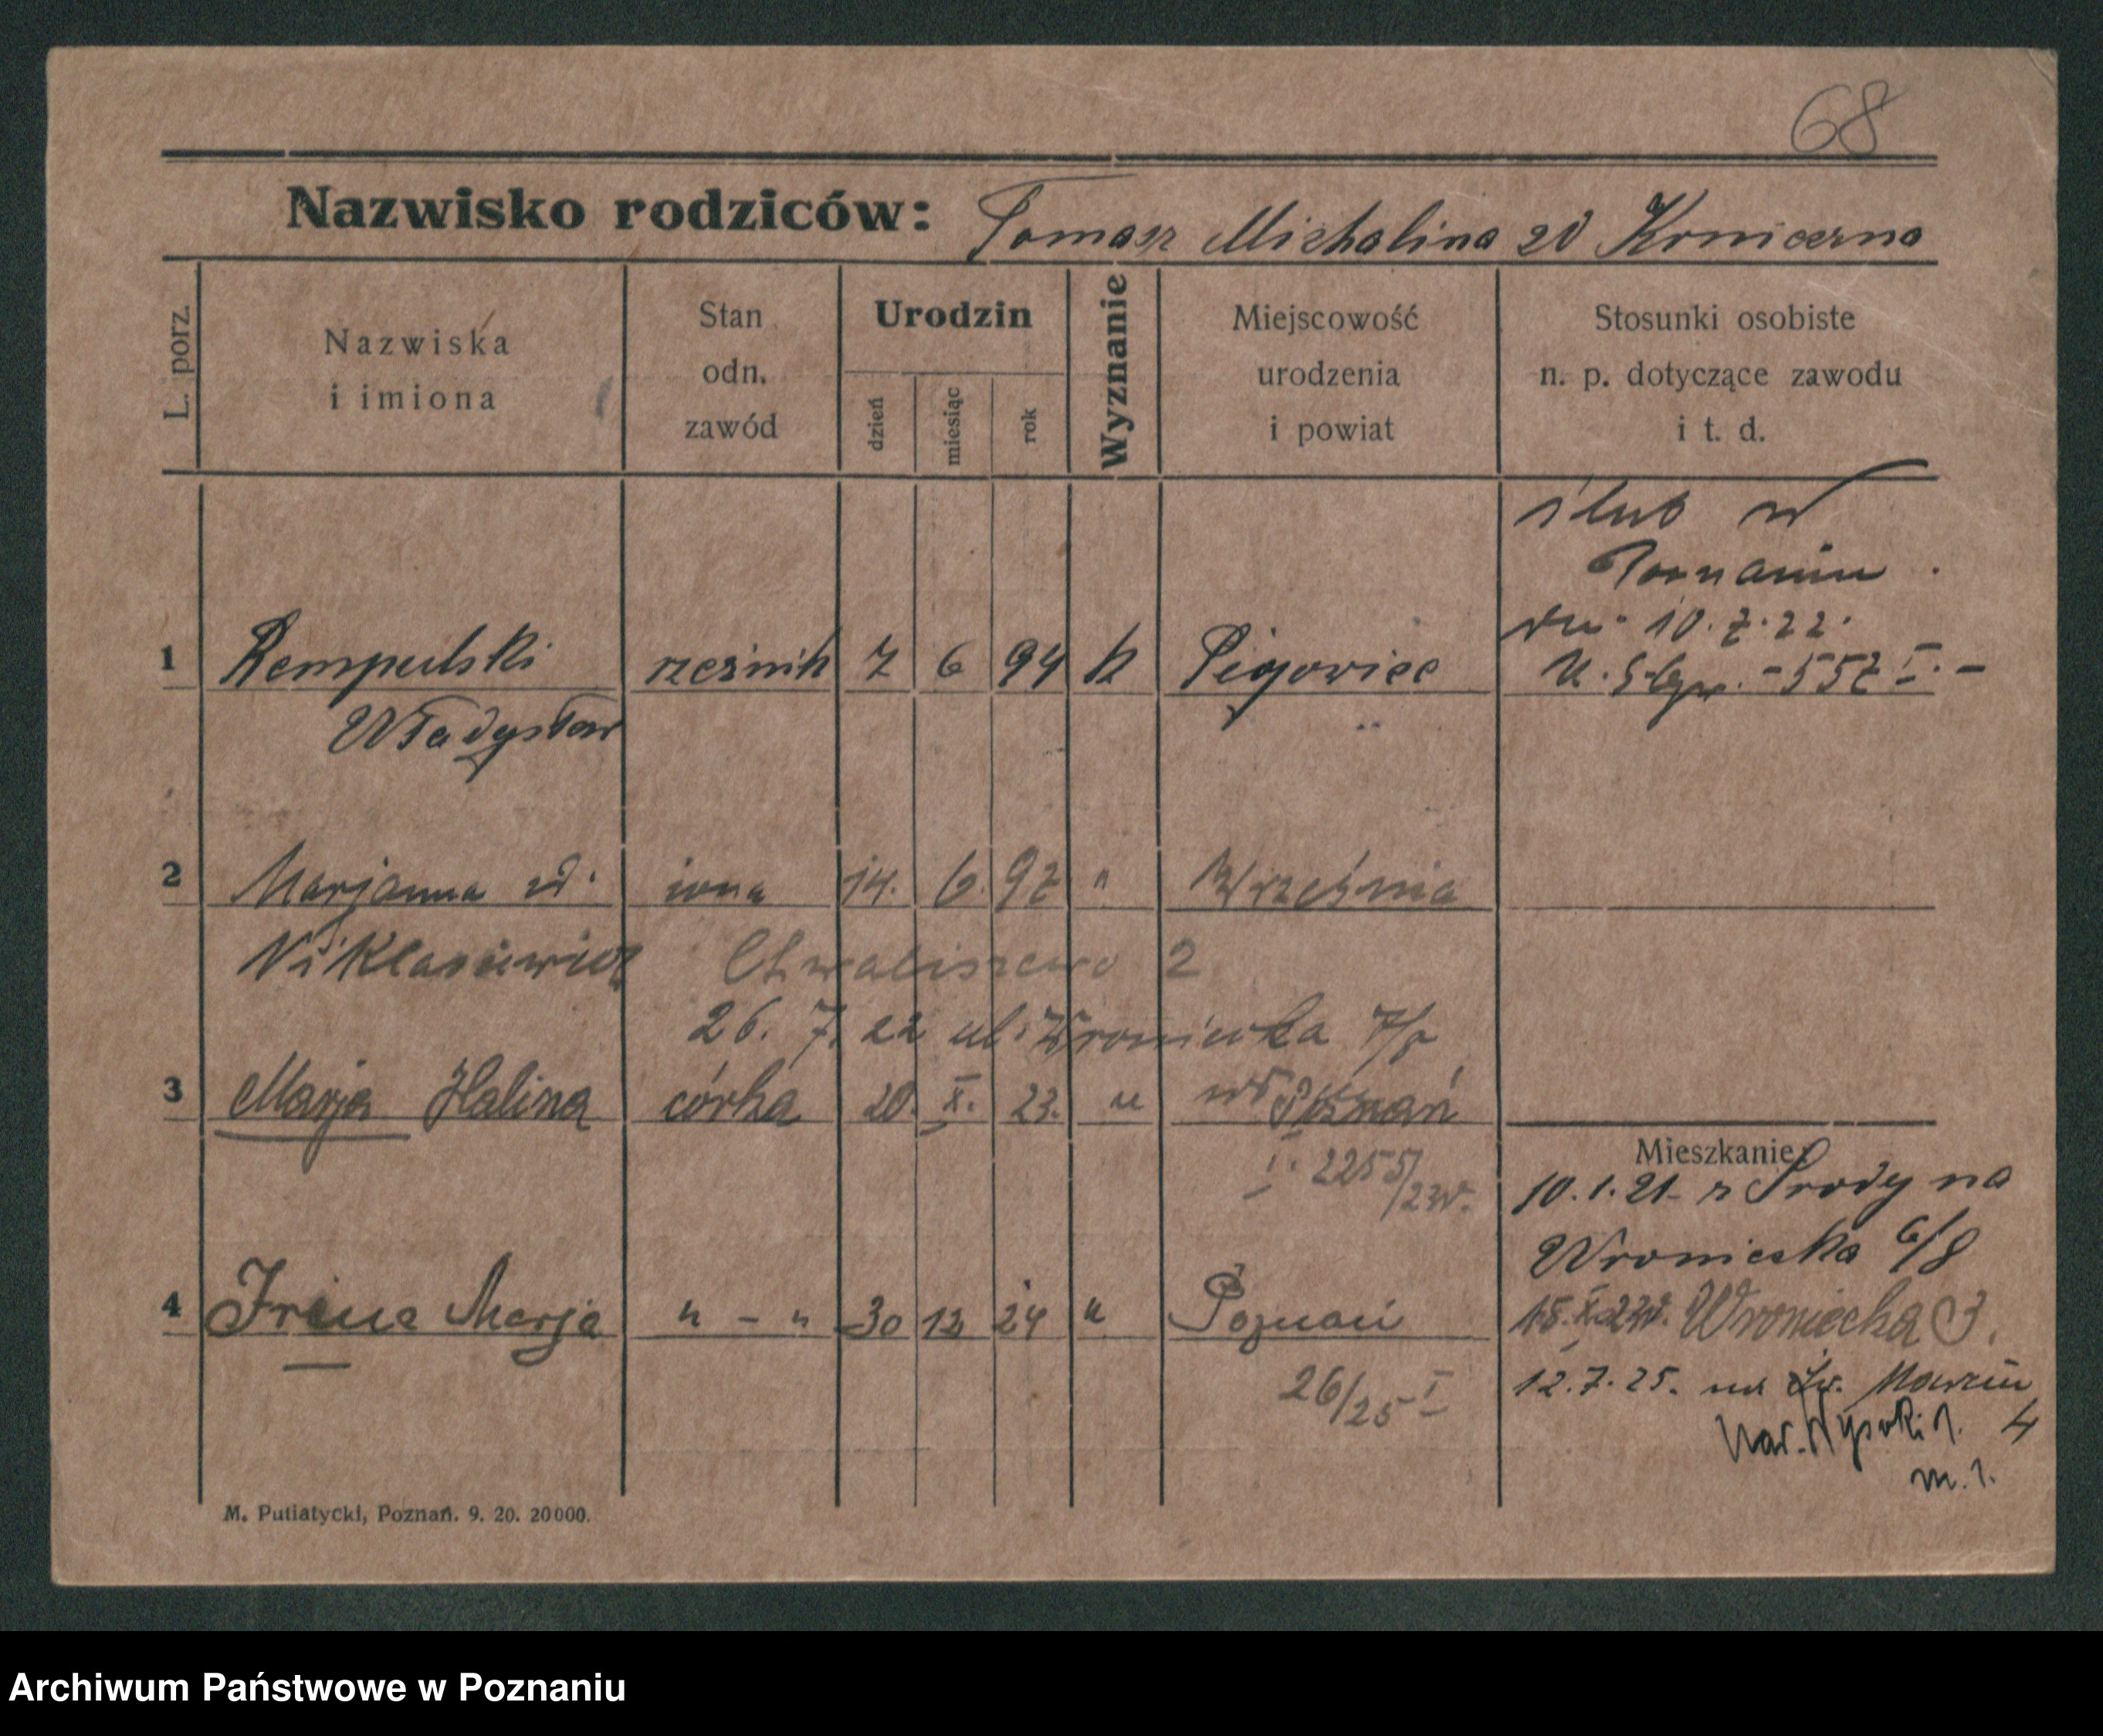 68
Nazwisko rodziców: Tomasz Michalina zd Konieczna
L. porz.
Nazwiska
i imiona
Stan
odn.
zawód
Urodzin
dzień
miesiąc
rok
Wyznanie
Miejscowość
urodzenia
i powiat
Stosunki osobiste
n. p. dotyczące zawodu
i t. d.
ślub w
Poznaniu
dn. 10.7.22.
1 Rempulski rzeźnik 7 6 94 k 557 I. -
Władysław
2 Marjanna zd. żona 14. 6. 97 " Września
Niklasiewicz Chwaliszewo 2
26. 7. 22 ul. Wroniecka
3 Marja Halina córka 20. X. 23. " Poznań
I. 2255/23r.
Mieszkanie:
10.1.21 z Środy na
Wroniecka 6/8
4 Irena Marja " - " 30 12 24 " Poznań
26/25 I
Wroniecka 3.
12.7.25. na Św. Marcin
4
m. 1.
M. Putiatycki, Poznań. 9. 20. 20000.
Archiwum Państwowe w Poznaniu